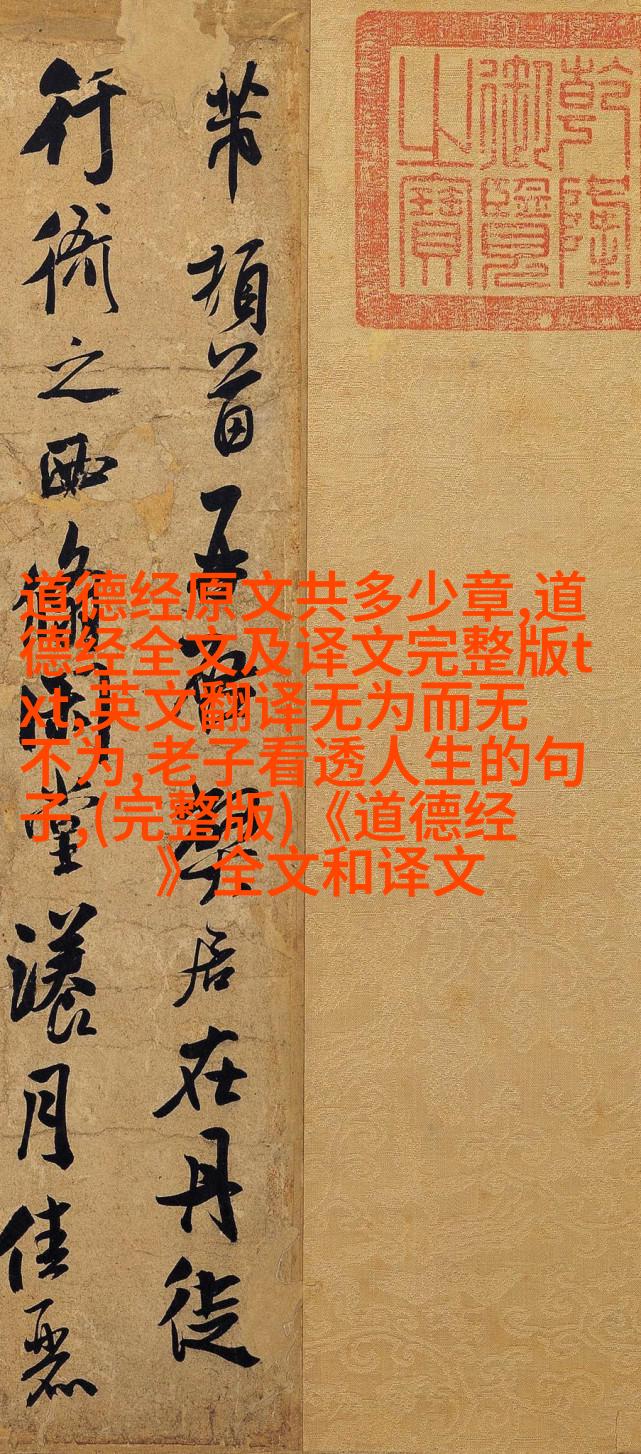 乾隆
御覽
之寶
芾頓首再居在丹徒
行衙之西堂漾月佳麗
道德经原文共多少章,道
德经全文及译文完整版t
xt,英文翻译无为而无
不为,老子看透人生的句
子,(完整版)《道德经
》全文和译文